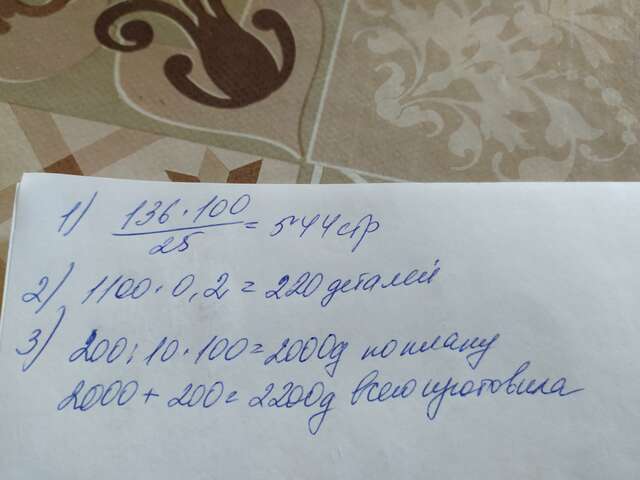 1) 136·100/25 = 544 стр
2) 1100·0,2 = 220 деталей
3) 200:10·100=2000д по плану
2000+200=2200д всего изготовила